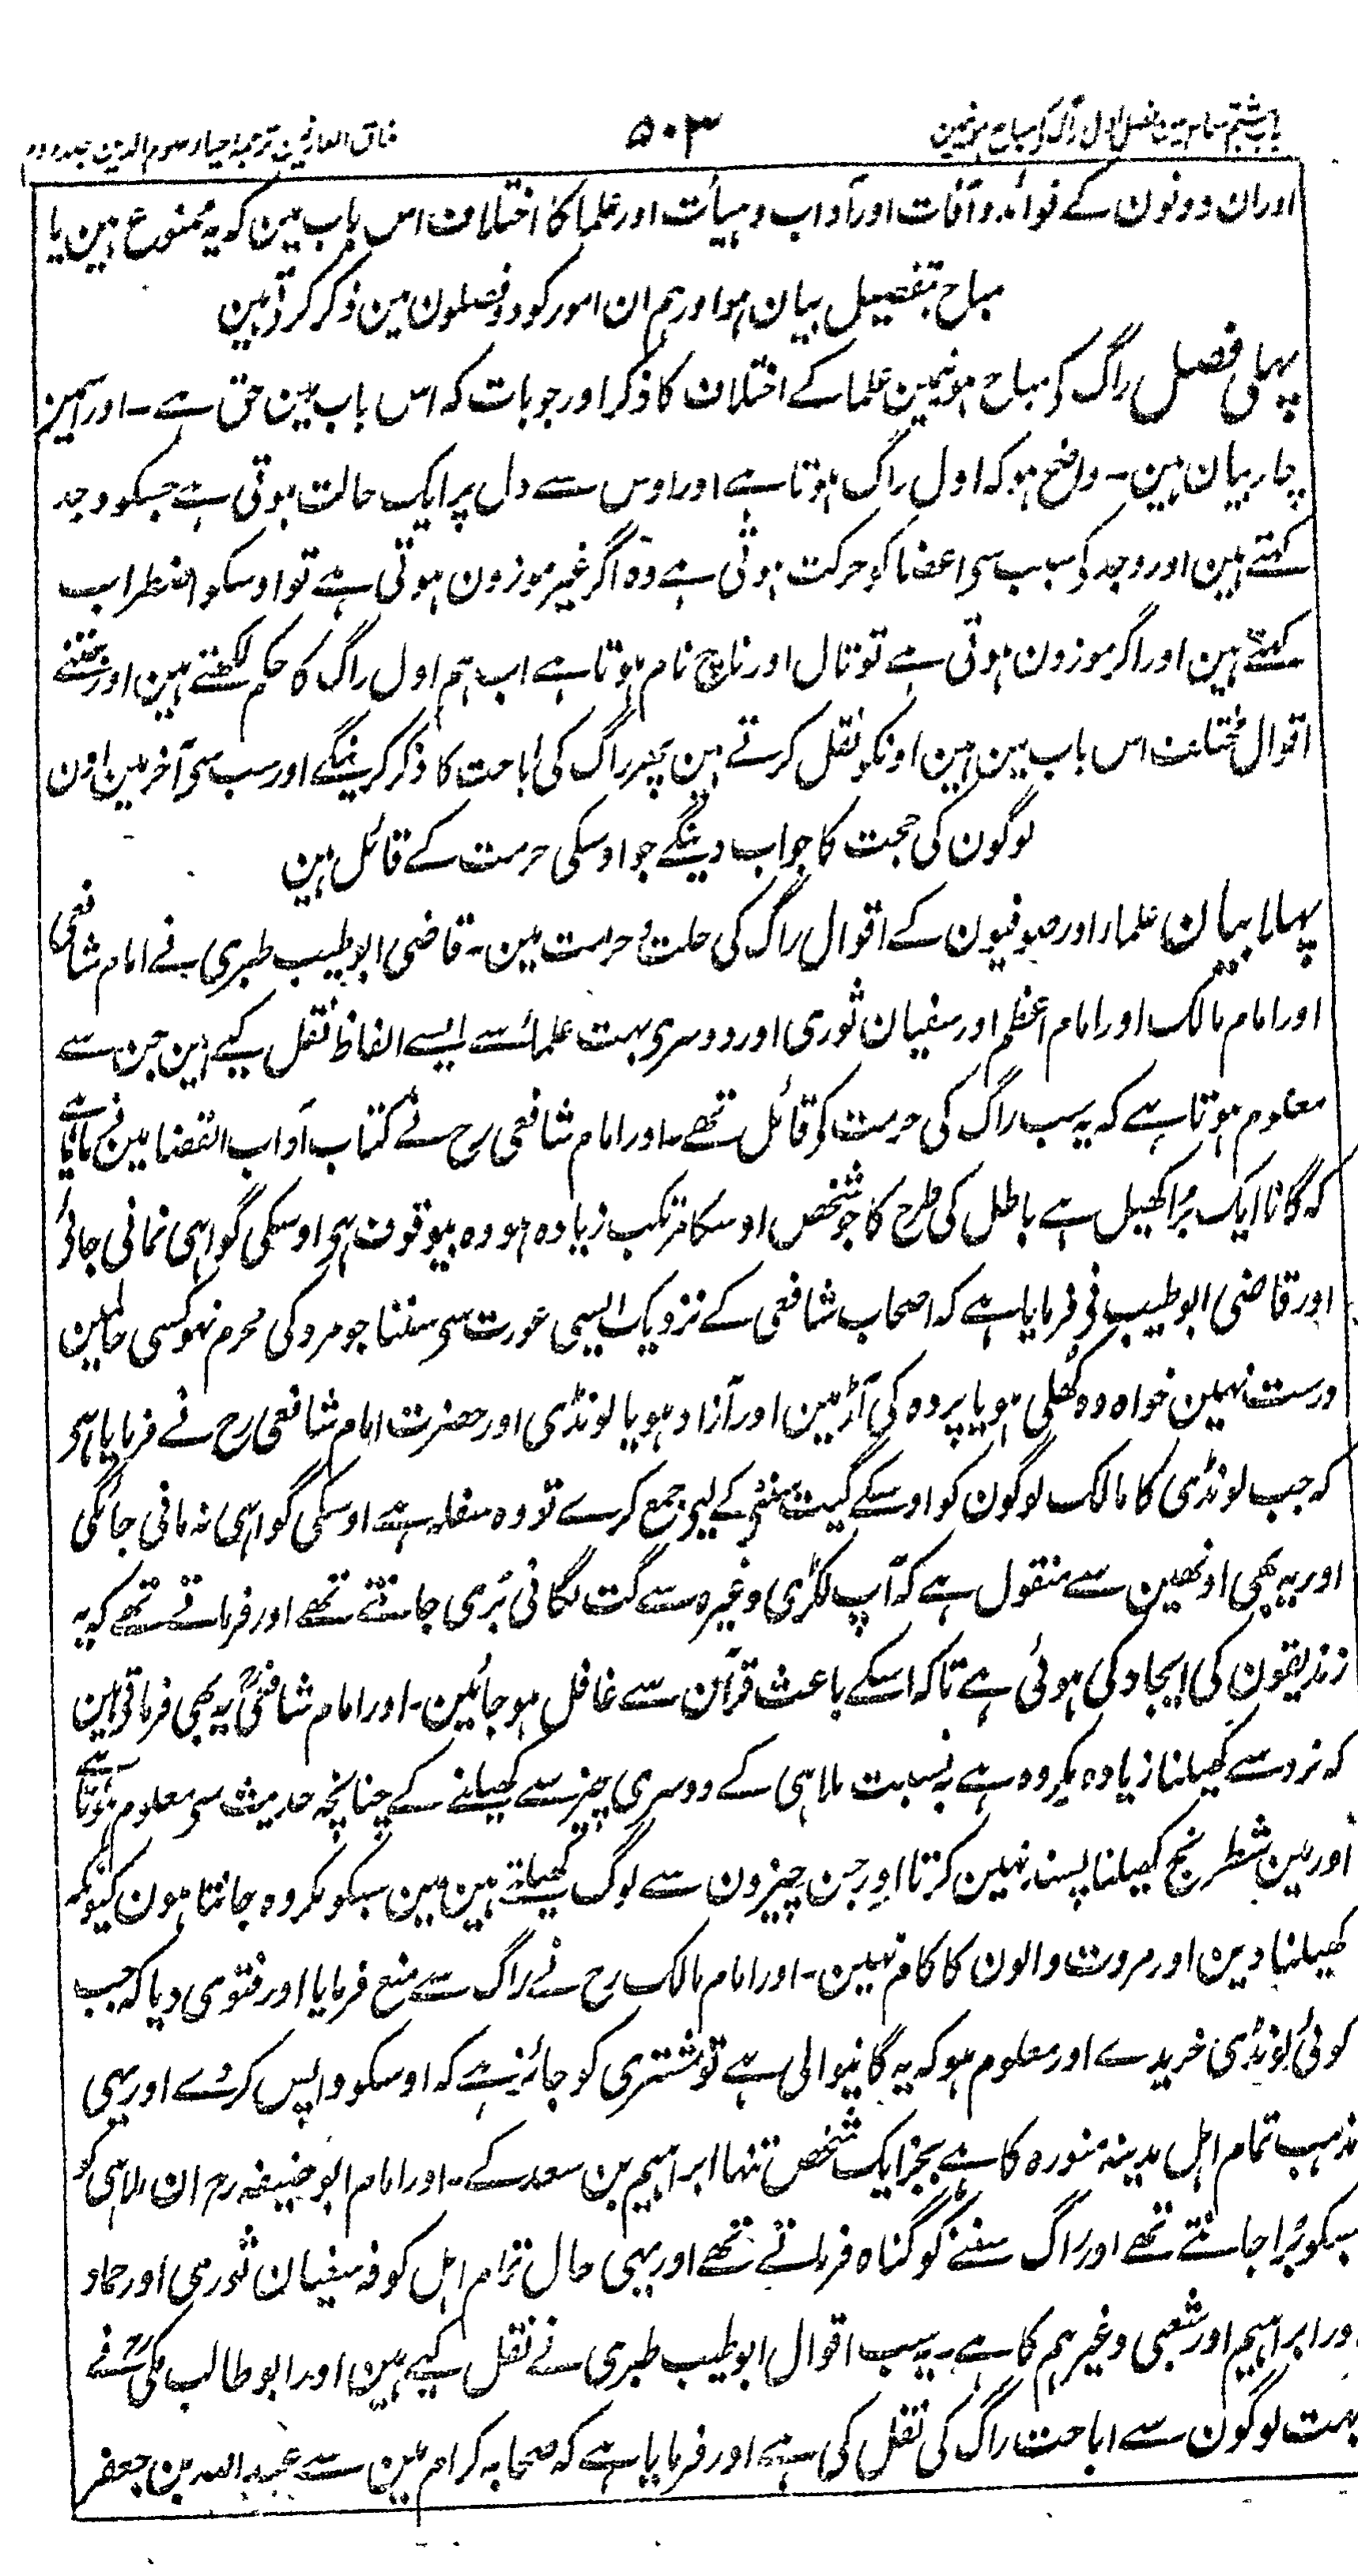 باب ہشتم سماع مین فصل اول راگ کی مباح ہونیمین
۵۰۳
مذاق العارفین ترجمہ احیاء علوم الدین جلد دوم
اور ان دونون کے فوائد و آفات اور آداب و ہیأت اور علما کا اختلاف اس باب مین کہ یہ ممنوع ہین یا
مباح بتفصیل بیان ہو اور ہم ان امور کو دو فصلون مین ذکر کرتے ہین
پہلی فصل راگ کی مباح ہونیمین علما کے اختلاف کا ذکر اور جو بات کہ اس باب مین حق ہے ۔ اور اسمین
چار بیان ہین ۔ واضح ہو کہ اول راگ ہوتا ہے اور اوس سے دل پر ایک حالت ہوتی ہے جسکو وجد
کہتے ہین اور وجد کی سبب سی اعضا کو حرکت ہوتی ہے وہ اگر غیر موزون ہوتی ہے تو اوسکو اضطراب
کہتے ہین اور اگر موزون ہوتی ہے تو تال اور ناچ نام ہوتا ہے اب ہم اول راگ کا حکم لکھتے ہین اور جتنے
اقوال مختلف اس باب مین ہین اونکو نقل کرتے ہین پھر راگ کی اباحت کا ذکر کرینگے اور سب سی آخر مین اون
لوگون کی حجت کا جواب دینگے جو اوسکی حرمت کے قائل ہین
پہلا بیان علماء اور صوفیون کے اقوال راگ کی حلت و حرمت مین ۔ قاضی ابو طیب طبری نے امام شافعی
اور امام مالک اور امام اعظم اور سفیان ثوری اور دوسری بہت علماء سے ایسے الفاظ نقل کیے ہین جن سے
معلوم ہوتا ہے کہ یہ سب راگ کی حرمت کی قائل تھے ۔ اور امام شافعی رح نے کتاب آداب القضا مین فرمایا ہے
کہ گانا ایک برا کھیل ہے باطل کی طرح کا جو شخص اوسکا مرتکب زیادہ ہو وہ بیوقوف ہی اوسکی گواہی نمانی جائے
اور قاضی ابو طیب نی فرمایا ہے کہ اصحاب شافعی کے نزدیک ایسی عورت سی سننا جو مرد کی محرم نہو کسی حالمین
درست نہین خواہ وہ کھلی ہو یا پردہ کی آڑ مین اور آزاد ہو یا لونڈی اور حضرت امام شافعی رح نے فرمایا ہی
کہ جب لونڈی کا مالک لوگون کو اوسکے گیت سننے کے لیی جمع کرے تو وہ سفلہ ہے اوسکی گواہی نہ مانی جائگی
اور یہ بھی اونھین سے منقول ہے کہ آپ لکڑی وغیرہ سے گت لگانی بری جانتے تھے اور فرماتے تھے کہ یہ
زندیقون کی ایجاد کی ہوئی ہے تاکہ اسکے باعث قرآن سے غافل ہو جائین ۔ اور امام شافعی رح یہ بھی فرماتی ہین
کہ نرد سے کھیلنا زیادہ مکروہ ہے بہ نسبت ملاہی کے دوسری چیز سے کھیلنے کے چنانچہ حدیث سی معلوم ہوتا ہے
اور مین شطرنج کھیلنا پسند نہین کرتا اور جن چیزون سے لوگ کھیلتے ہین مین سبکو مکروہ جانتا ہون کیونکہ
کھیلنا دین اور مروت والون کا کام نہین ۔ اور امام مالک رح نے راگ سے منع فرمایا اور فتوی دیا کہ جب
کوئی لونڈی خریدے اور معلوم ہو کہ یہ گانیوالی ہے تو مشتری کو جائز ہے کہ اوسکو واپس کردے اور یہی
مذہب تمام اہل مدینہ منورہ کا ہے بجز ایک شخص تنہا ابراہیم بن سعد کے ۔ اور امام ابو حنیفہ رح ان ملاہی کو
سبکو برا جانتے تھے اور راگ سننے کو گناہ فرماتے تھے اور یہی حال تمام اہل کوفہ سفیان ثوری اور حماد
اور ابراہیم اور شعبی وغیرہم کا ہے ۔ یہ سب اقوال ابو طیب طبری نے نقل کیے ہین اور ابو طالب مکی رح نے
بہت لوگون سے اباحت راگ کی نقل کی ہے اور فرمایا ہے کہ صحابہ کرام مین سے عبد اللہ بن جعفر